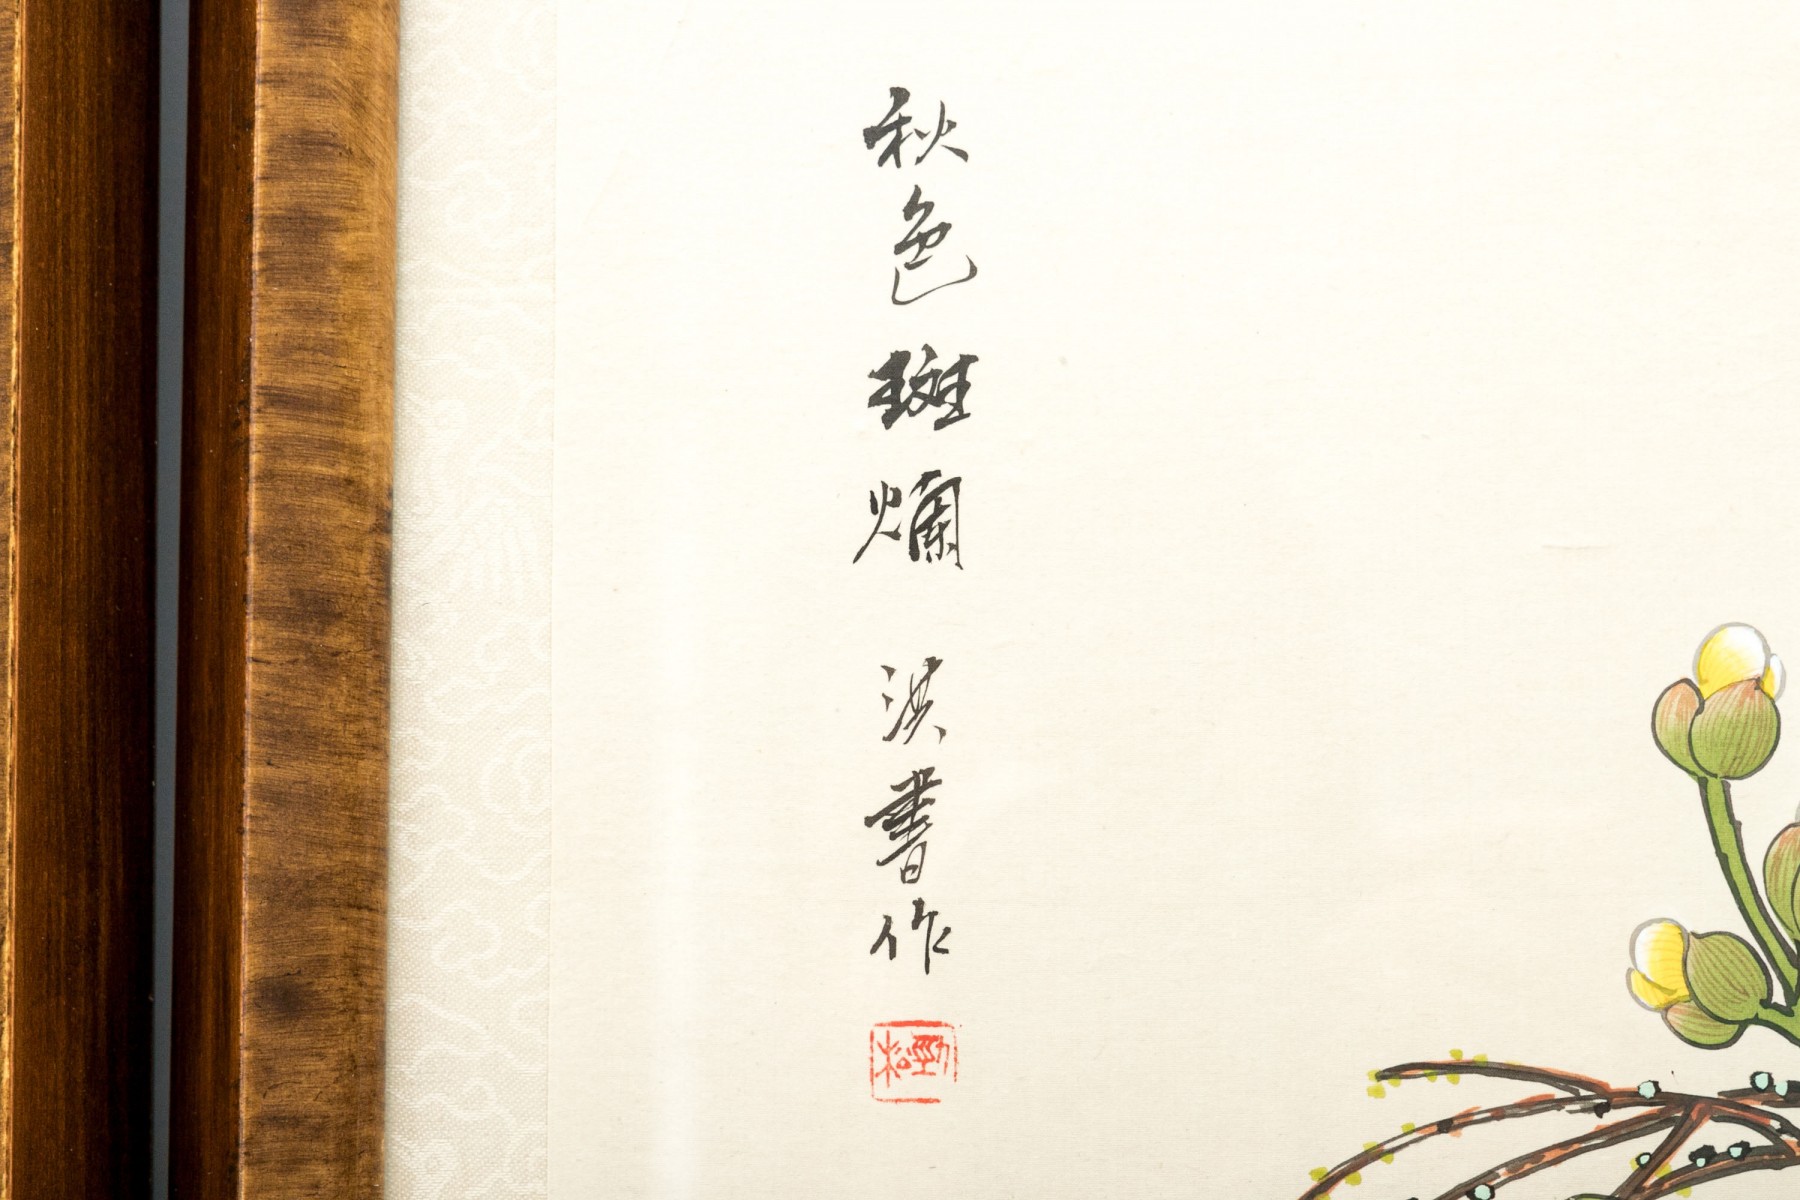 秋色斑斕 淇書作